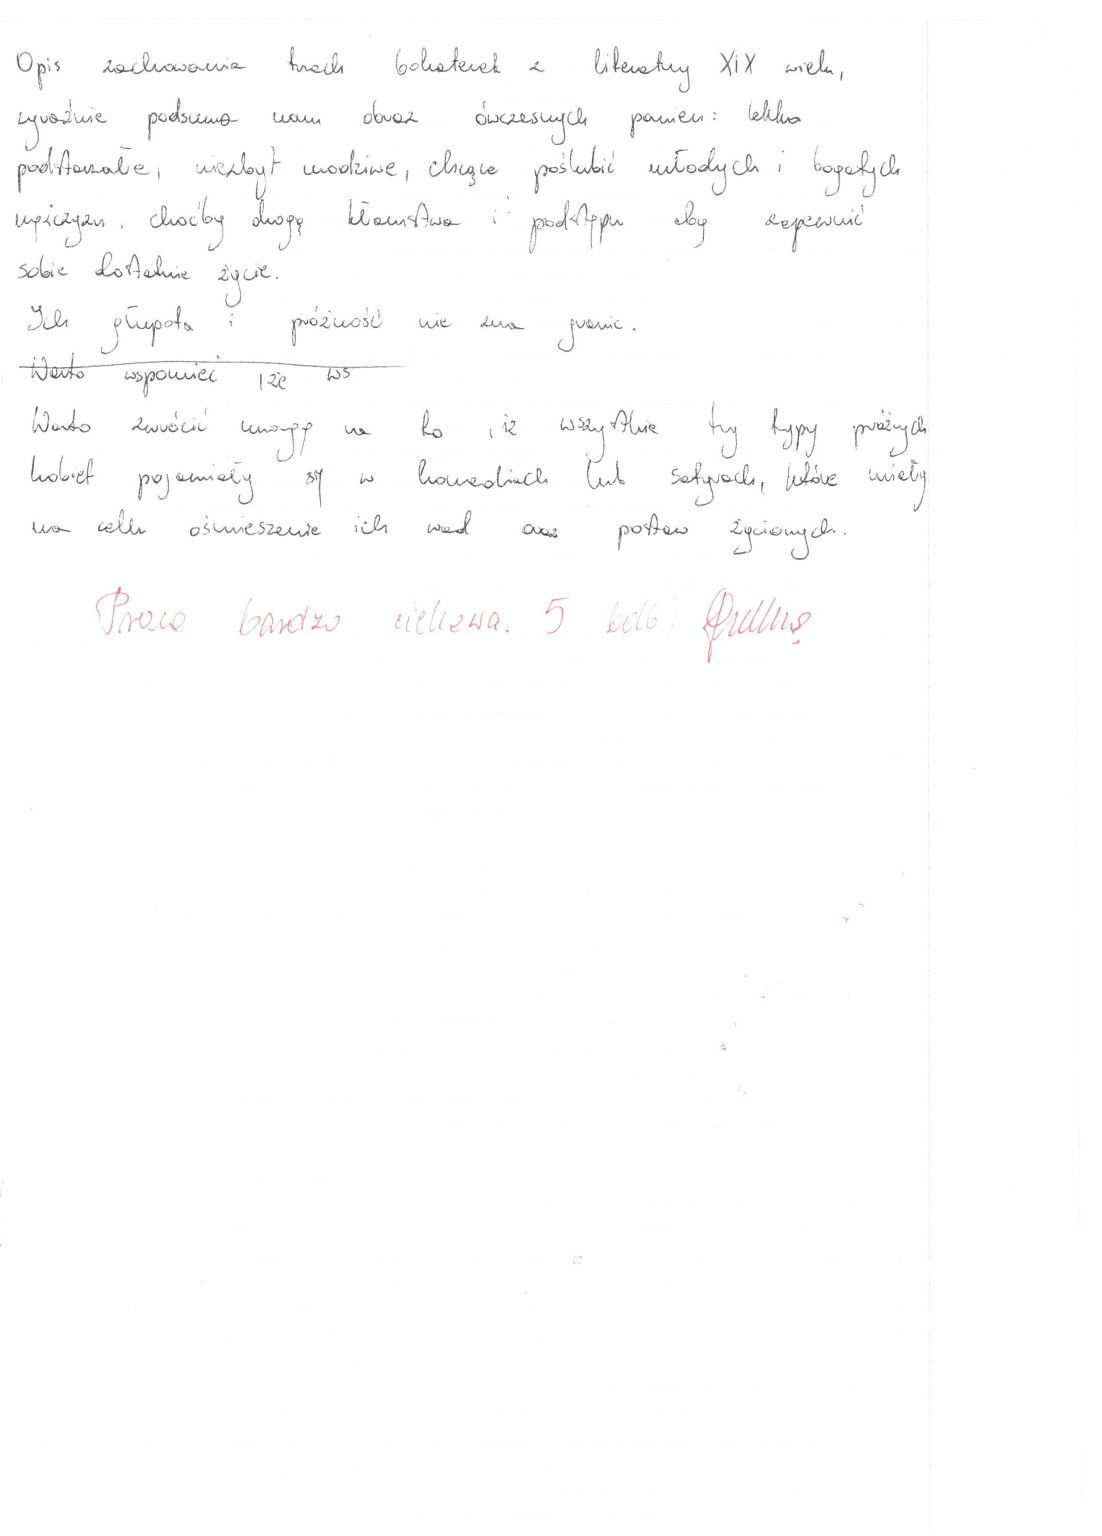 Opis zachowania trzech bohaterek z literatury XIX wieku,
wyraźnie podsuwa nam obraz ówczesnych panien: lekko
podstarzałe, niezbyt urodziwe, chcące poślubić młodych i bogatych
mężczyzn, choćby drogą kłamstwa i podstępu aby zapewnić
sobie dostatnie życie.
Ich głupota i próżność nie zna granic.
Warto wspomieć , że ws
Warto zwrócić uwagę na to , iż wszystkie trzy typy próżnych
kobiet pojawiały się w komediach lub satyrach, które miały
na celu ośmieszenie ich wad oraz postaw życiowych.
Praca bardzo ciekawa. 5 bdb